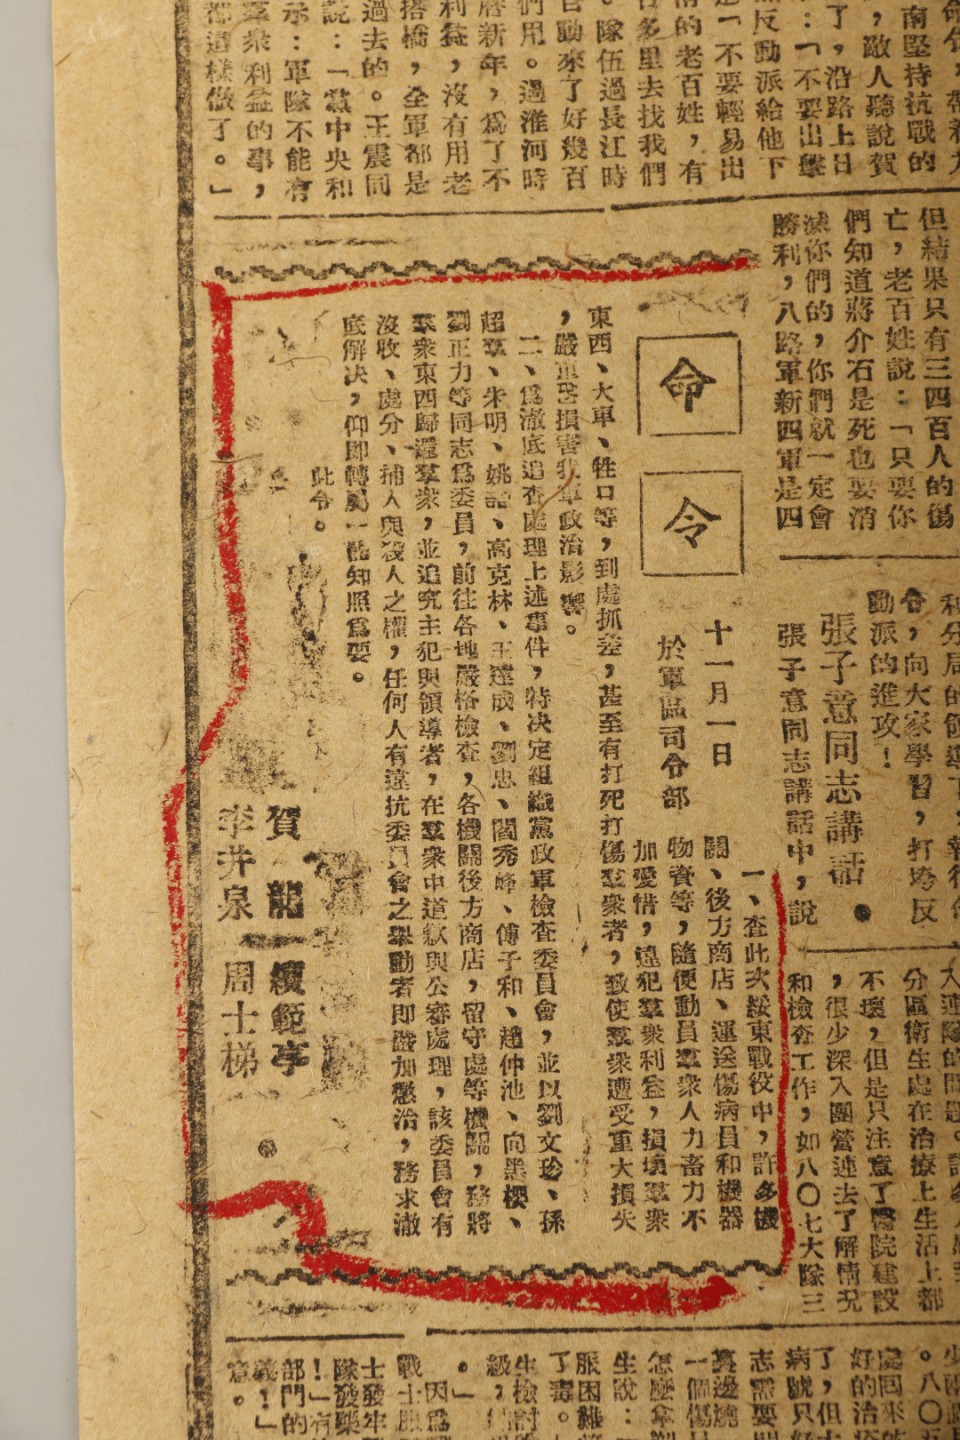 南堅持抗戰的
，敵人聽說賀
了，沿路上日
：「不要出擊
反動派給他下
「不要輕易出
的老百姓，有
多里去找我們
隊伍過長江時
動來了好幾百
們用。過淮河時
曆新年，爲了不
利益，沒有用老
搭橋，全軍都是
過去的。王震同
說：「黨中央和
示：軍隊不能有
羣衆利益的事，
都這樣做了。」
但結果只有三四百人的傷
亡，老百姓說：「只要你
們知道蔣介石是死也要消
滅你們的，你們就一定會
勝利，八路軍新四軍是四
令，向大家學習，打垮反
動派的進攻！
張子意同志講話●
張子意同志講話中，說
分區衛生處在治療上生活上都
不壞，但是只注意了醫院建設
，很少深入團營連去了解情況
和檢查工作，如八〇七大隊三
命令
十一月一日
於軍區司令部
一、查此次綏東戰役中，許多機
關、後方商店、運送傷病員和機器
物資等，隨便動員羣衆人力畜力不
加愛惜，違犯羣衆利益，損壞羣衆
東西、大車、牲口等，到處抓差，甚至有打死打傷羣衆者，致使羣衆遭受重大損失
，嚴重損害我軍政治影響。
二、爲澈底追查處理上述事件，特決定組織黨政軍檢查委員會，並以劉文珍、孫
超羣、朱明、姚喆、高克林、王達成、劉忠、閻秀峰、傅子和、趙仲池、向黑櫻、
劉正力等同志爲委員，前往各地嚴格檢查，各機關後方商店，留守處等機關，務將
羣衆東西歸還羣衆，並追究主犯與領導者，在羣衆中道歉與公審處理，該委員會有
沒收、處分、捕人與殺人之權，任何人有違抗委員會之舉動者即嚴加懲治，務求澈
底解决，仰即轉屬一體知照爲要。
此令。
賀龍 續範亭
李井泉 周士梯
好的治
病號只好
志需要
一個傷
怎麼拿
生說：
服困難
了毒。
生檢討
級，
。」
因爲
戰士服
士發牢
隊發棄
！」有
部門的
義！」
意。